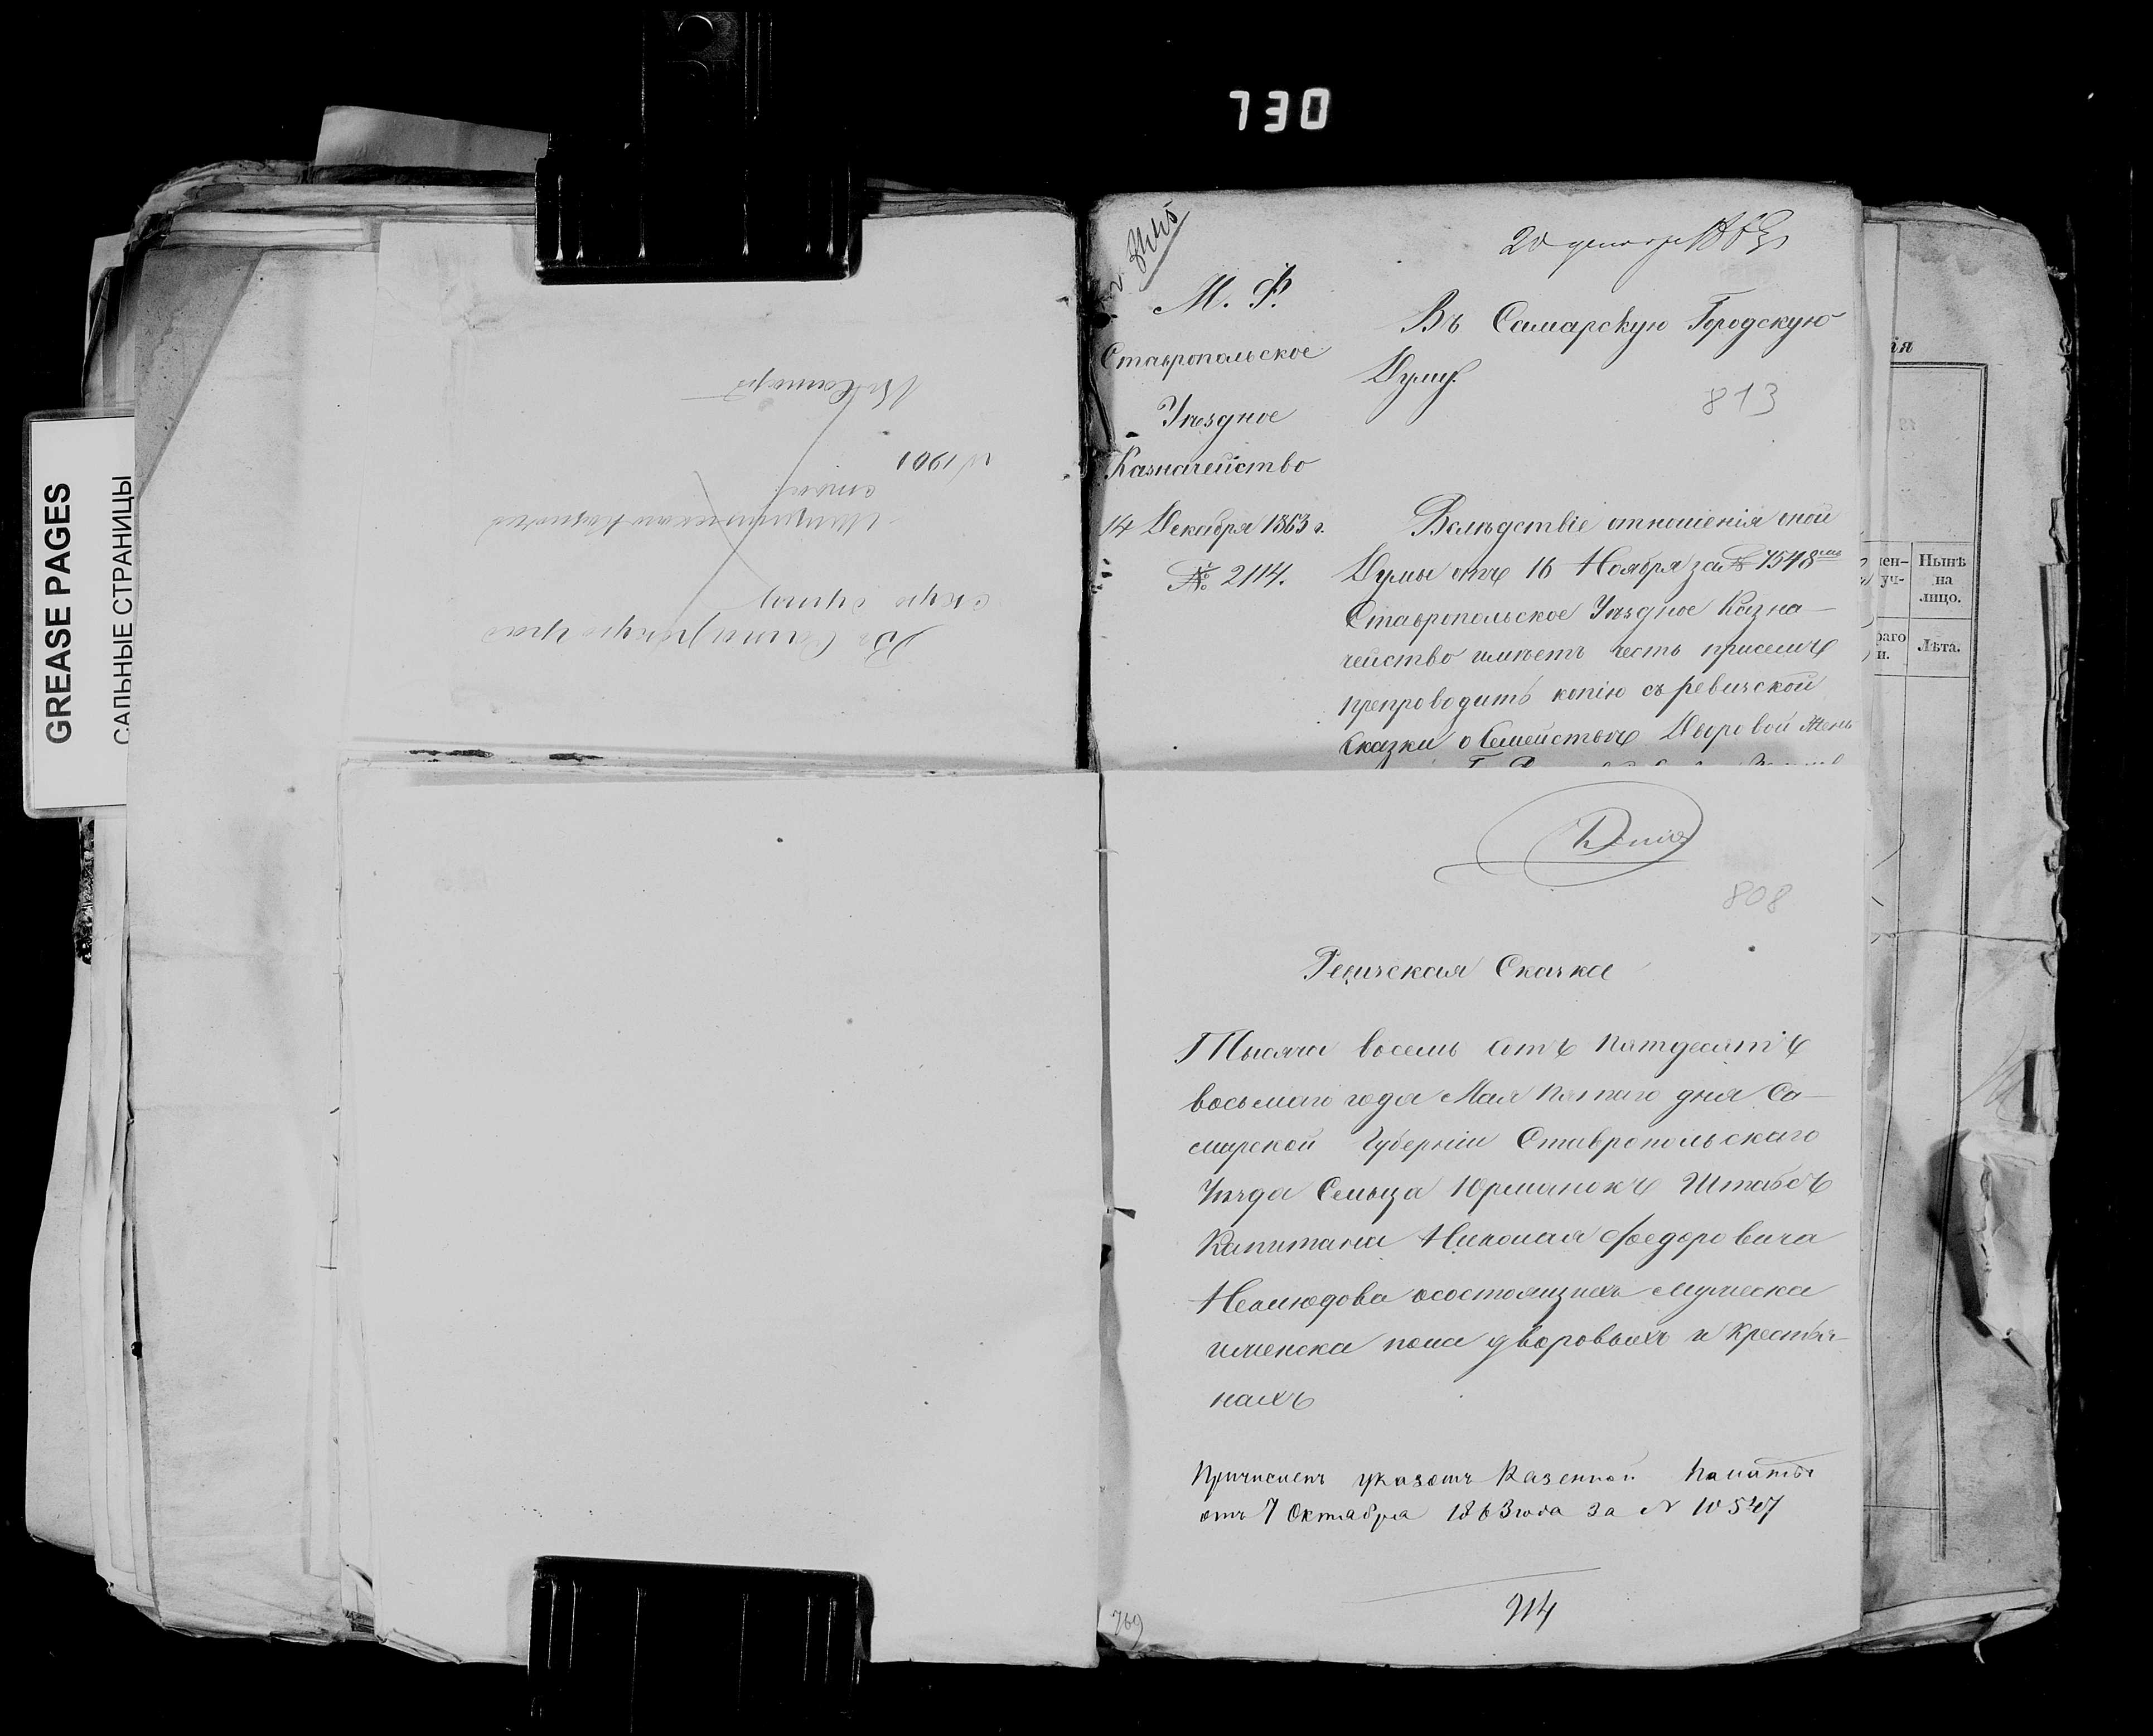 730
GREASE PAGES
САЛЬНЫЕ СТРАНИЦЫ
Въ Самарскую град
скую думу
Казначей
ство
№ 1901
Въ Самару
20 декабр 1863
М. Ф.
Ставропольское
Уѣздное
Казначейство
14 Декабря 1863 г.
№ 2114.
Въ Самарскую Городскую
Думу.
813
Вслѣдствіе отношенія оной
Думы отъ 16 Ноября за № 7548
Ставропольское Уѣздное Казна-
чейство имѣетъ честь при семъ
препроводить копію съ ревизской
Сказки о Семействѣ Дворовой Жен
ія
чен-
уч-
Нынѣ
на
лицо.
раго
н.
Лѣта.
Копія
808
Ревизская Сказка
Тысяча восемь сотъ пятдесятъ
восьмаго года Мая пятаго дня Са-
марской Губерніи Ставропольскаго
Уѣзда Сельца Юрманокъ Штабсъ
Капитана Николая Федоровича
Нелюдова о состоящихъ мужеска
и женска пола дворовыхъ и крестья-
нахъ
Причисленъ указомъ Казенной Палаты
отъ 7 Октября 1863 года за № 10547
914
769